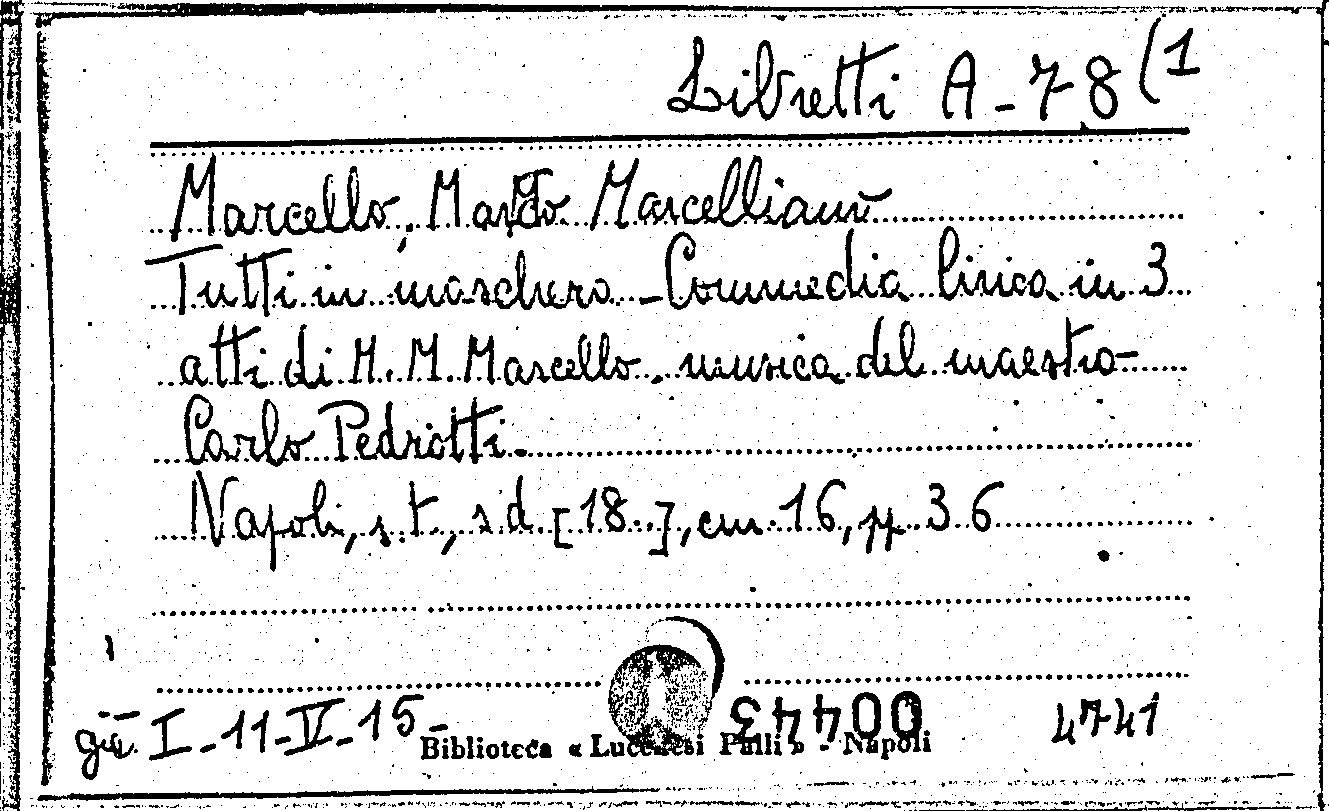 Libretti A-78(1
Marcello, Marco Marcelliano
Tutti in maschera - Commedia lirica in 3
atti di M. M. Marcello. musica del maestro
Carlo Pedrotti.
Napoli, s.t., s.d. [18..], cm. 16, pp. 36
già. I-11-IV-15-
004443
4741
Biblioteca « Lucchesi Palli » - Napoli